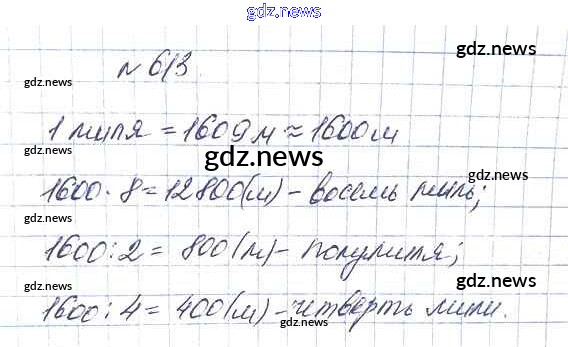 gdz.news
gdz.news
gdz.news
№ 613.
gdz.news
1 миля = 1609 м ≈ 1600 м
gdz.news
1600 · 8 = 12800 (м) - восемь миль;
gdz.news
gdz.news
1600 : 2 = 800 (м) - полумиля;
gdz.news
gdz.news
1600 : 4 = 400 (м) - четверть мили.
gdz.news